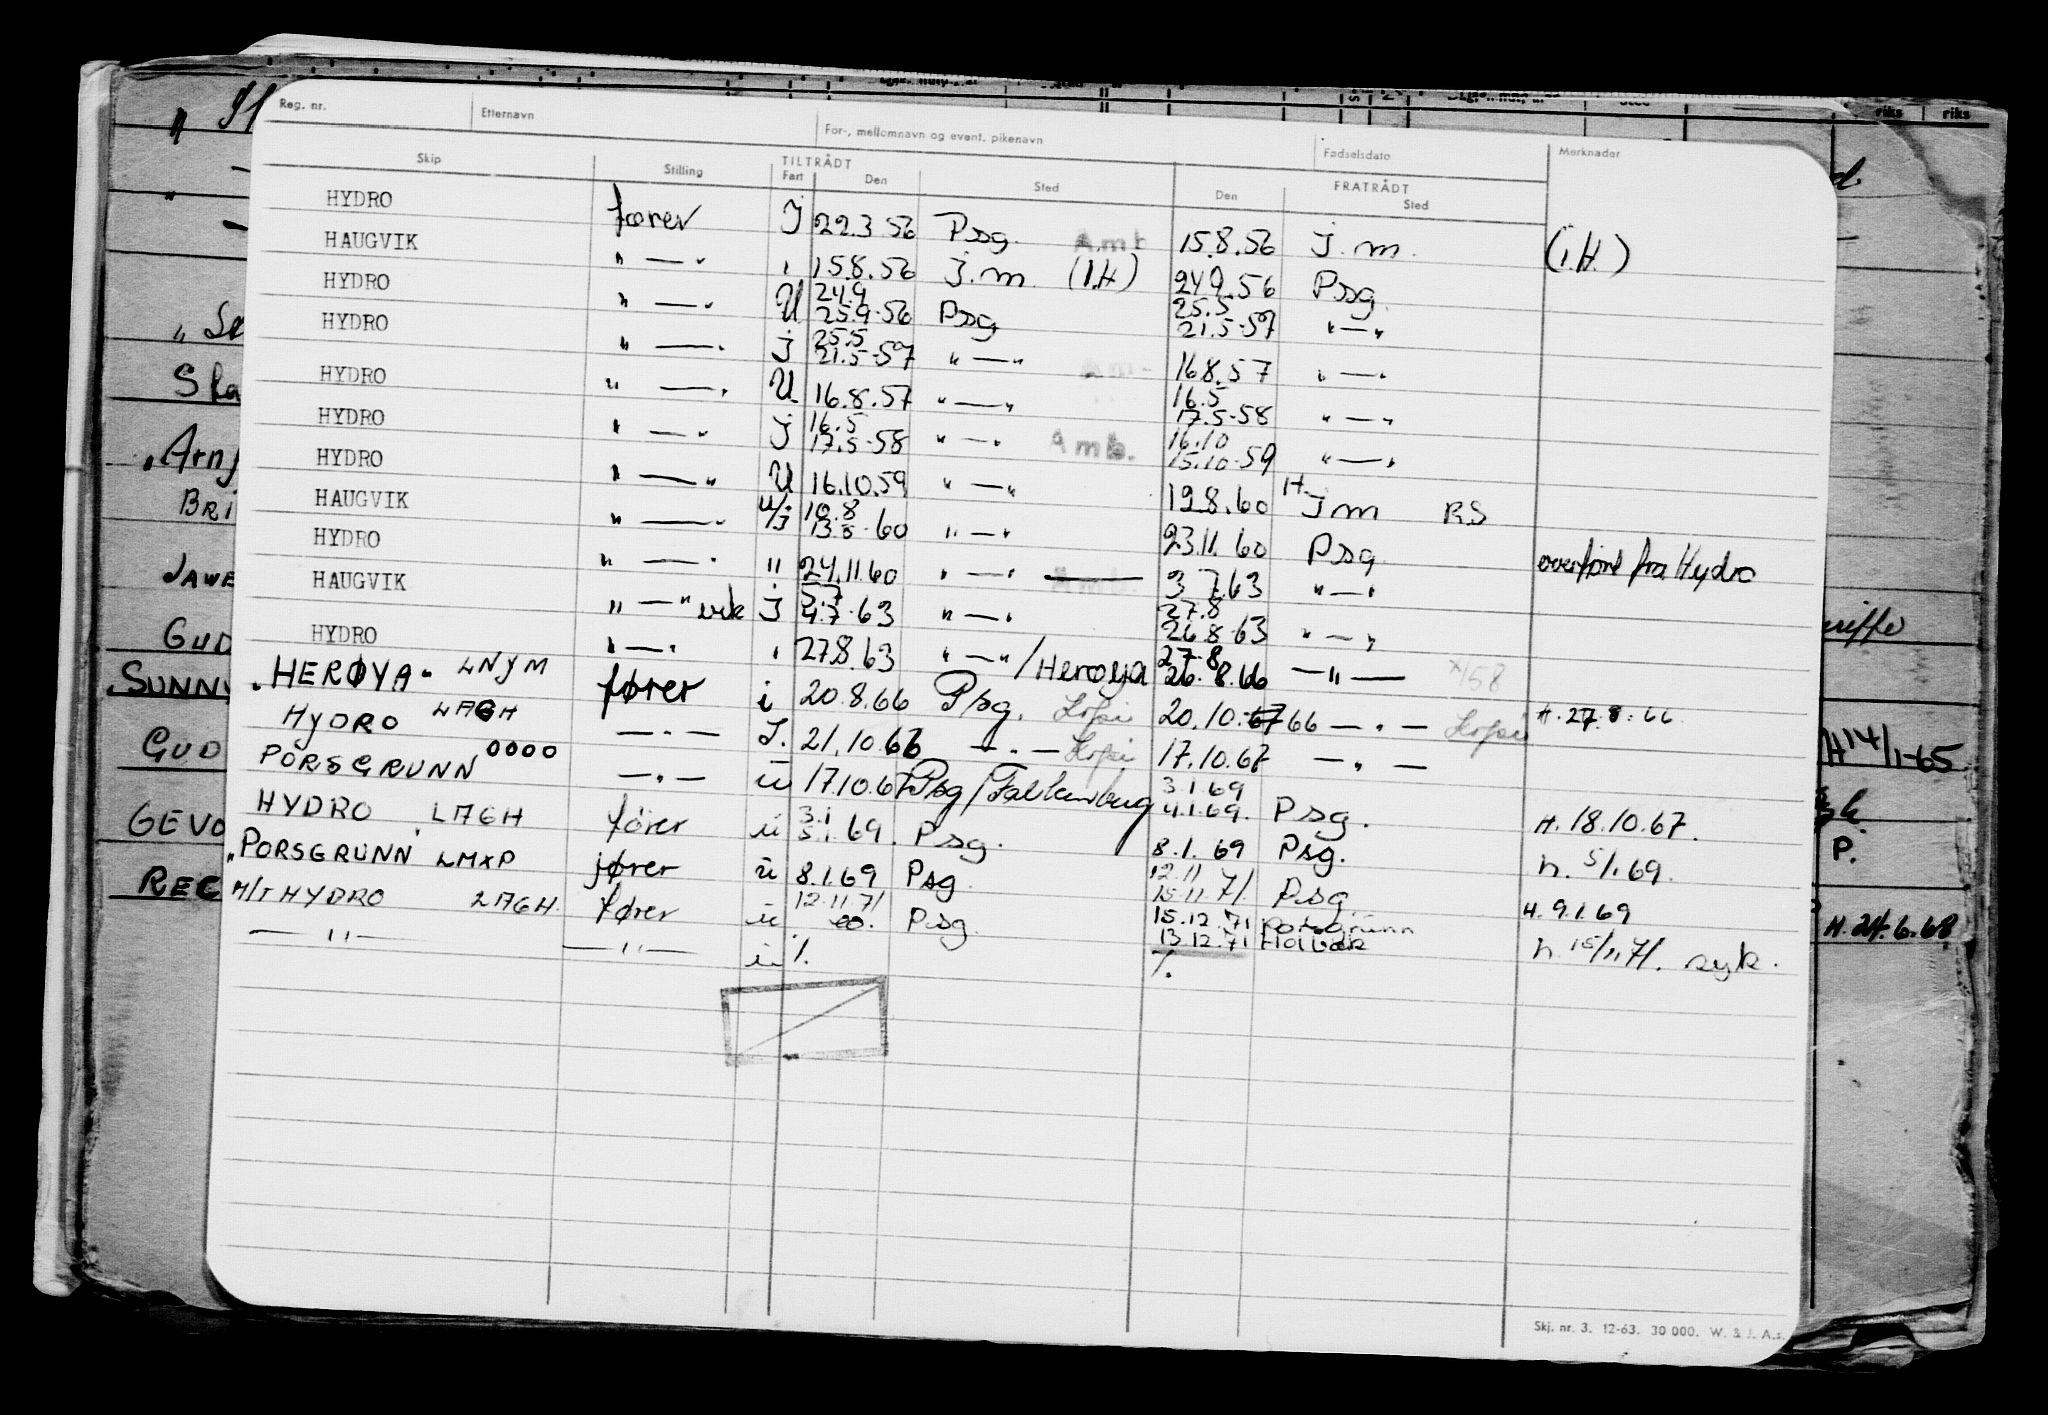 Reg. nr. Etternavn For-, mellomnavn og event. pikenavn Fødselsdato Merknader
Skip Stilling TILTRÅDT Fart Den Sted FRATRÅDT Den Sted
HYDRO fører J 22.3.56 Psg. Amb 15.8.56 J.m. (i.H.)
HAUGVIK " — " " 15.8.56 J.m. (i.H) 24.9.56 Psg.
HYDRO " — " U 24.9 25.9.56 Psg 25.5 21.5.57 " — "
HYDRO " — " J 25.5 21.5.57 " — " Am 16.8.57 " — "
HYDRO " — " U 16.8.57 " — " 16.5 17.5.58 " — "
HYDRO " — " J 16.5 17.5.58 " — " Amb. 16.10 15.10.59 " — "
HYDRO " — " U 16.10.59 " — " 12.8.60 H. J m RS
HAUGVIK " — " U/J 10.8 13.8.60 " — " 23.11.60 Psg. overført fra Hydro
HYDRO " — " " 24.11.60 " — " Amb. 3.7.63 " — "
HAUGVIK " — " vik J 5.7 4.7.63 " — " 27.8 26.8.63 " — "
HYDRO " — " " 27.8.63 " — " / Herøya 27.8 26.8.66 — " — x/58
"HERØYA" LNJM fører i 20.8.66 Psg. 20.10.67 66 — " — H. 27.8.66
HYDRO LAGH — " — I. 21.10.66 — " — 17.10.67 — " —
PORSGRUNN 0000 — " — u 17.10.67 Psg/Falkenburg 3.1.69 4.1.69. Psg. H. 18.10.67.
HYDRO LAGH fører u 3.1 5.1.69. Psg. 8.1.69 Psg. h. 5/1.69.
"PORSGRUNN LMXP fører u 8.1.69 Psg. 12.11 15.11.71. Psg H. 9.1.69
M/T HYDRO LAGH. fører u 12.11.71 Psg. 15.12.71 Porsgrunn 13.12.71 Holbæk h. 15/11.71. syk.
— " — — " — u %. %.
Skj. nr. 3. 12-63. 30 000. W. & J. A.s.
H 14/1-65
P.
H. 24.6.68